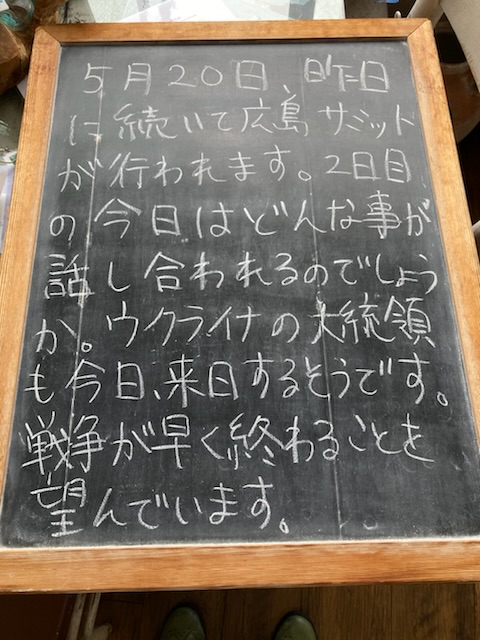 5月20日、昨日
に続いて広島サミット
が行われます。2日目
の今日はどんな事が
話し合われるのでしょう
か。ウクライナの大統領
も今日、来日するそうです。
戦争が早く終わることを
望んでいます。